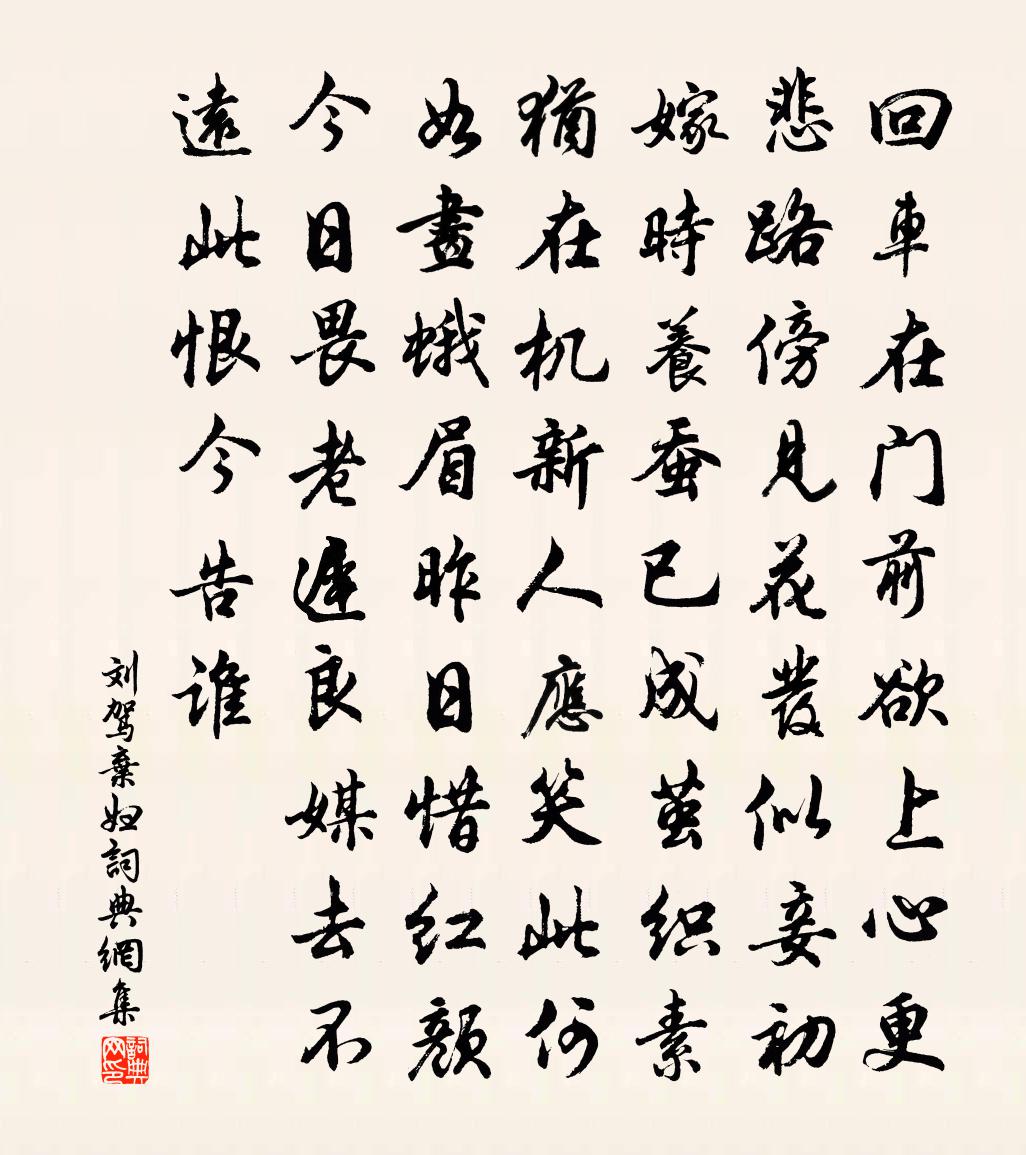 回車在门前欲上心更
悲路傍見花發似妾初
嫁時養蚕已成茧织素
猶在机新人應笑此何
如畫蛾眉昨日惜红顔
今日畏老遲良媒去不
遠此恨今告谁
刘驾棄妇詞典網集
詞典
网印